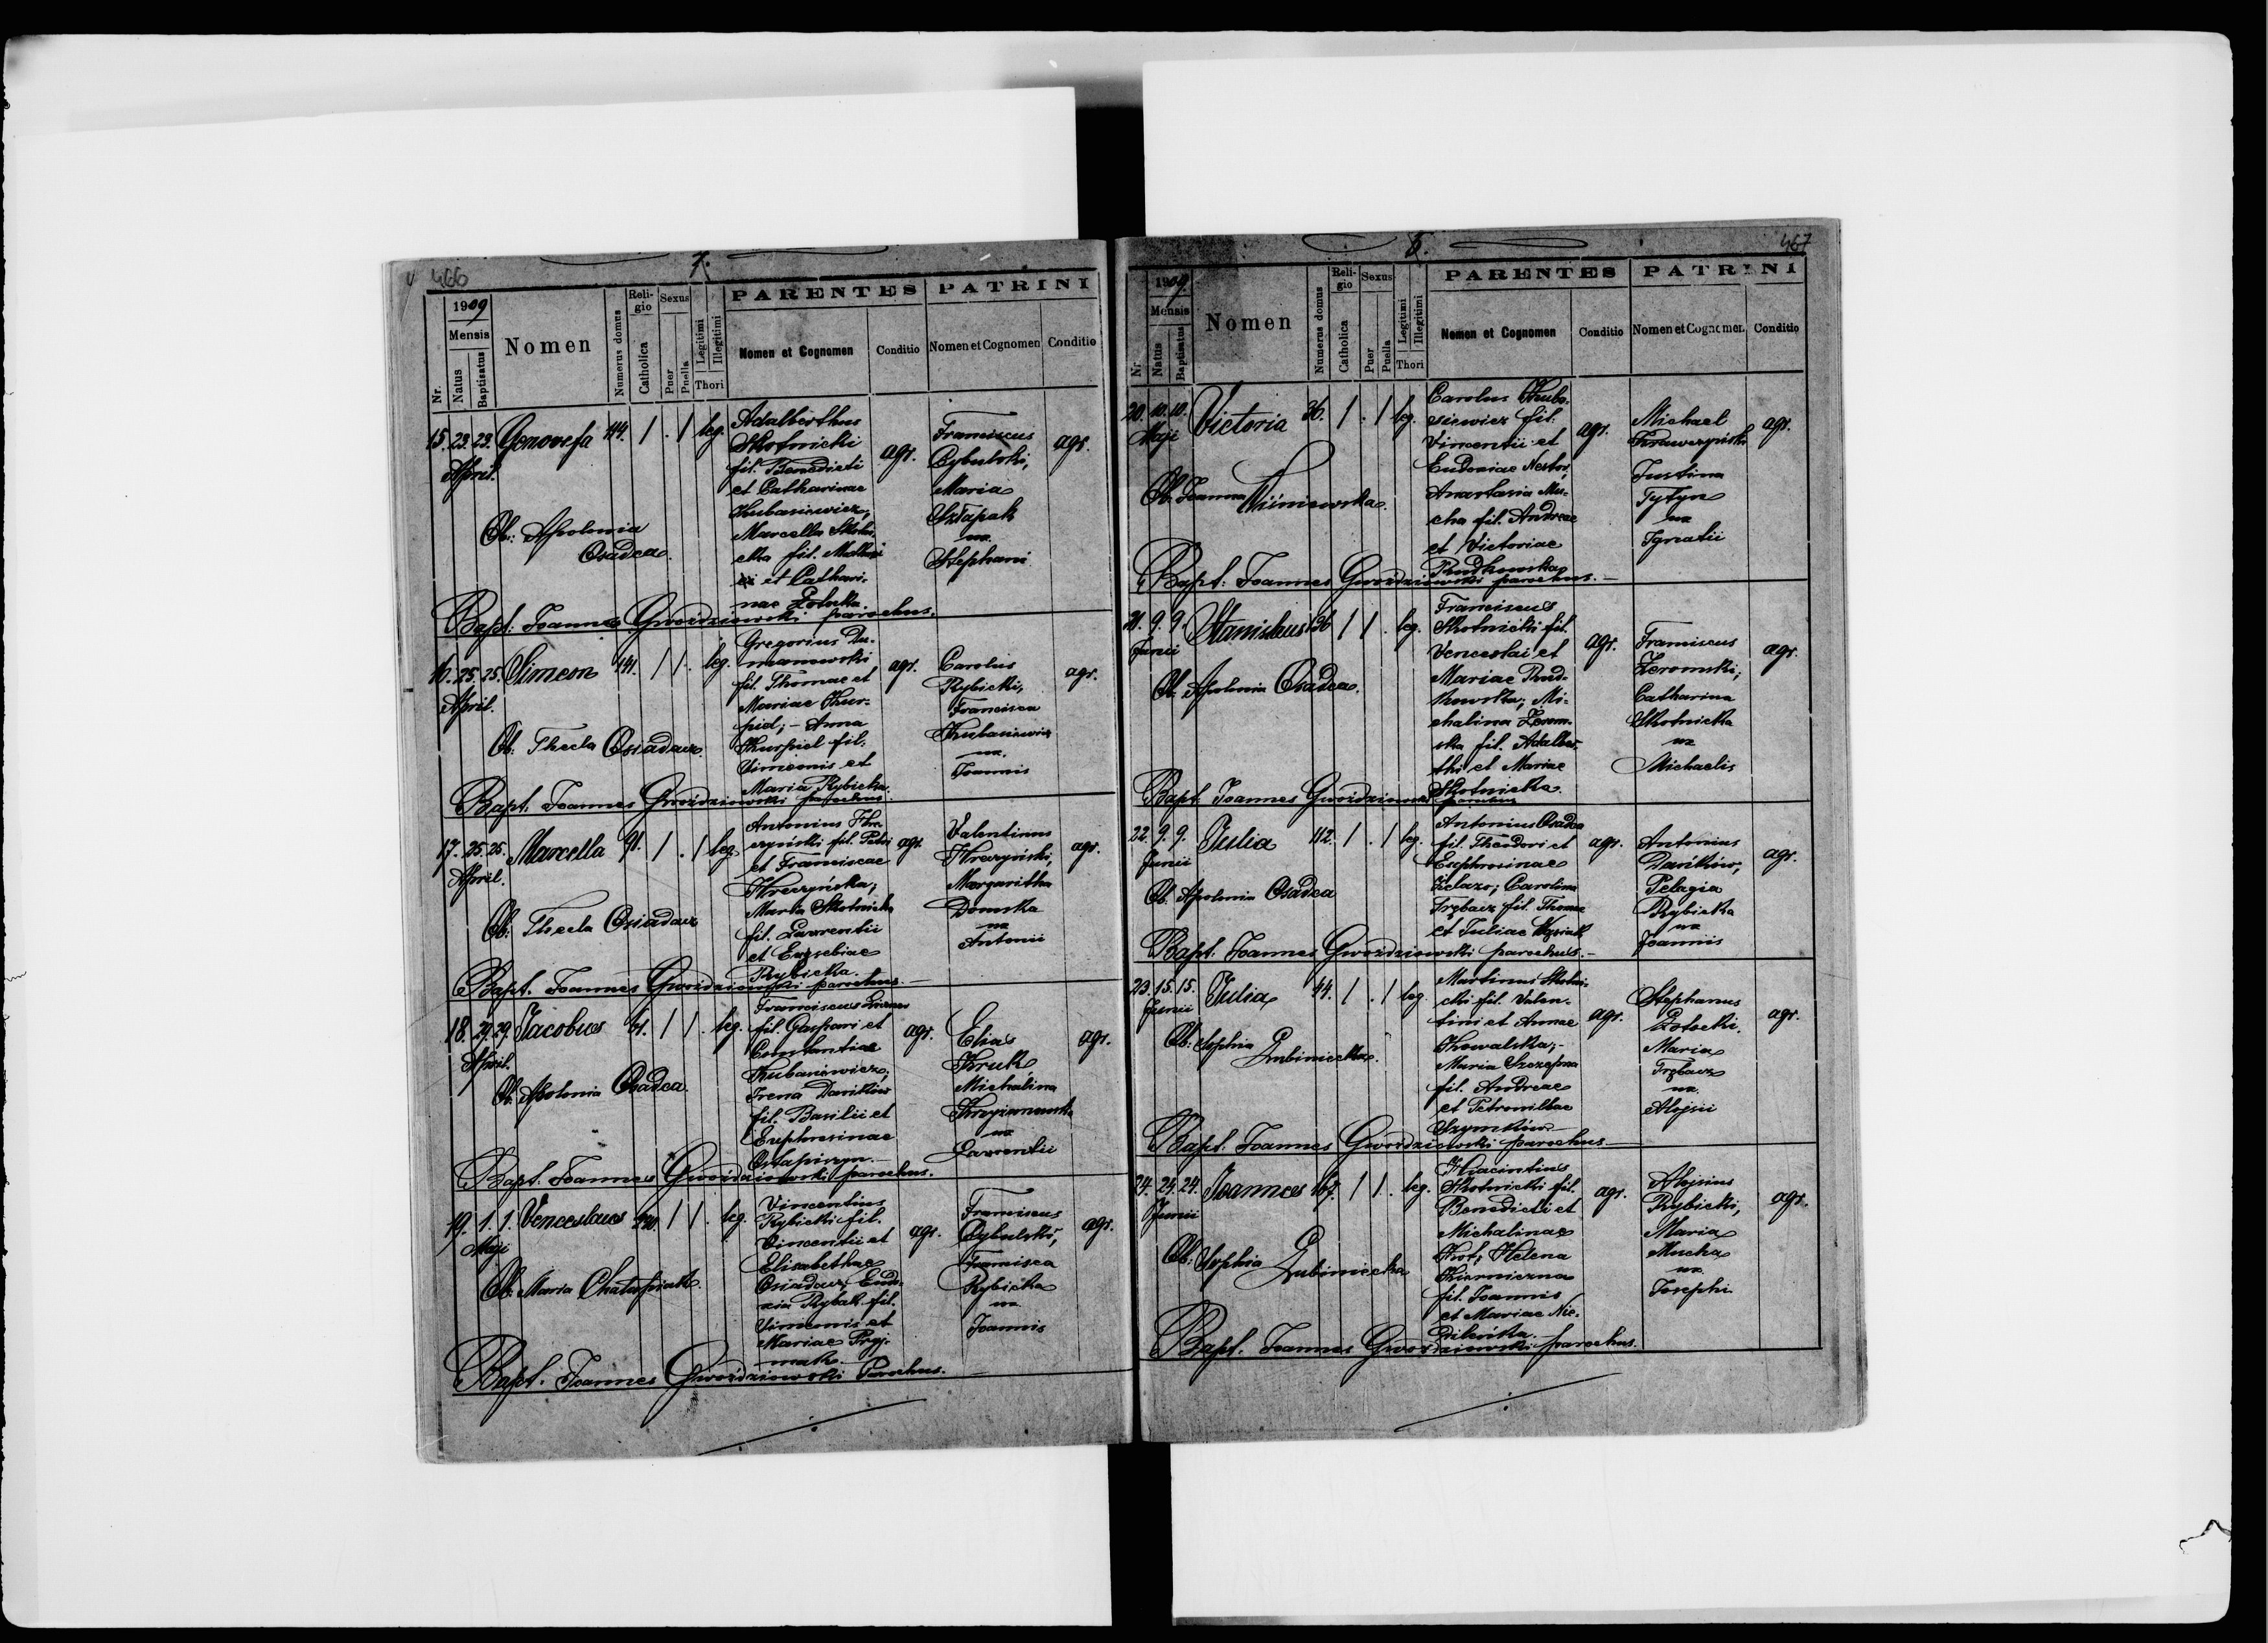 466
7.
1909
Mensis
Nr.
Natus
Baptisatus
Nomen
Numerus domus
Religio
Catholica
Sexus
Puer
Puella
Legitimi
Illegitimi
Thori
PARENTES
Nomen et Cognomen
Conditio
PATRINI
Nomen et Cognomen
Conditio
15. 23. 23. Genovefa 144. 1 . 1 leg.
April.
Ob: Apolonia
Osadca.
Adalberthus
Skotnicki
fil. Benedicti
et Catharinae
Kubasiewicz;
Marcella
cka fil.
et Cathari-
nae Potocka.
agr.
Franciscus
Cybulski,
Maria
Szłapak
ux.
Stephani
agr.
Bapt: Joannes Gwoździowski parochus.
16. 25. 25. Simeon 141. 1 1 . leg.
April.
Ob: Thecla Osiadacz.
Gregorius Du-
manowski
fil. Thomae et
Mariae Kur-
piel; - Anna
Kurpiel fil.
Simeonis et
Maria Rybicka.
agr.
Carolus
Rybicki,
Francisca
Kubasiewicz
ux.
Joannis
agr.
Bapt. Joannes Gwoździowski parochus.
17. 25. 25. Marcella 91. 1 . 1 leg.
April.
Ob: Thecla Osiadacz
Antonius Kre-
czyński fil. Petri
et Franciscae
Kreczyńska;
Maria Skotnicka
fil. Laurentii
et Eusebiae
Rybicka.
agr.
Valentinus
Kreczyński,
Margaritha
Domska
ux
Antonii
agr.
Bapt. Joannes Gwoździowski parochus.
18. 29. 29. Jacobus 1 1 . leg.
April.
Ob: Apolonia Osadca.
Franciscus
fil. Gaspari et
Constantiae
Kubasiewicz;
Irena Daników
fil. Basilii et
Euphrosinae
Ostapiszyn.
agr.
Elias
Kruk,
Michalina
ux
Laurentii
agr.
Bapt. Joannes Gwoździowski parochus.
19. 1. 1. Venceslaus 1 1 . leg.
Maji
Ob: Maria Chatapiak.
Vincentius
Rybicki fil.
Vincentii et
Elisabethae
Osiadacz; Eudo-
xia Rybak fil.
Simeonis et
Mariae Pryj-
mak.
agr.
Franciscus
Cybulski,
Francisca
Rybicka
ux.
Joannis
agr.
Bapt. Joannes Gwoździowski Parochus.
467
1909.
Mensis
Nr.
Natus
Baptisatus
Nomen
Numerus domus
Religio
Catholica
Sexus
Puer
Puella
Legitimi
Illegitimi
Thori
PARENTES
Nomen et Cognomen
Conditio
PATRINI
Nomen et Cognomen
Conditio
20. 10. 10. Victoria 36. 1 . 1 leg.
Maji
Ob. Joanna Wiśniewska.
Carolus Kuba-
siewicz fil.
Vincentii et
Eudoxiae Nestor,
Anastasia Mu-
cha fil. Andreae
et Victoriae
Rudkowska
agr.
Michael
Krawczyński
Justina
Tytyn
ux
Ignatii
agr.
Bapt: Joannes Gwoździowski parochus.
21. 9. 9. Stanislaus 136 1 1 . leg.
Junii
Ob. Apolonia Osadca.
Franciscus
Skotnicki fil.
Venceslai et
Mariae Rud-
kowska; Mi-
chalina Zerom-
ska fil. Adalber-
thi et Mariae
Skotnicka.
agr.
Franciscus
Zeromski;
Catharina
Skotnicka
ux
Michaelis
agr.
Bapt. Joannes Gwoździowski parochus
22. 9. 9. Julia 112. 1 . 1 leg.
Junii
Ob. Apolonia Osadca
Antonius Osadca
fil. Theodori et
Euphrosinae
Żelazo; Carolina
Trębacz fil. Thomae
et Juliae
agr.
Antonius
Daników,
Pelagia
Rybicka
ux
Joannis
agr.
Bapt. Joannes Gwoździowski parochus.
23. 15. 15. Julia 44. 1 . 1 leg.
Junii
Ob: Sophia Lubiniecka.
Martinus Skotni-
cki fil. Valen-
tini et Annae
Kowalska; -
Maria Szczepna
fil. Andreae
et Petronillae
Szymków
agr.
Stephanus
Potocki.
Maria
Trębacz
ux.
Alojsii
agr.
Bapt. Joannes Gwoździowski parochus
24. 24. 24. Joannes 167. 1 1 . leg.
Junii
Ob. Sophia Lubiniecka
Hiacintus
Skotnicki fil.
Benedicti et
Michalinae
Kot; Helena
Kierniczna
fil. Joannis
et Mariae Nie-
agr.
Alojsius
Rybicki,
Maria
Mucha
ux.
Josephi
agr.
Bapt. Joannes Gwoździowski parochus.